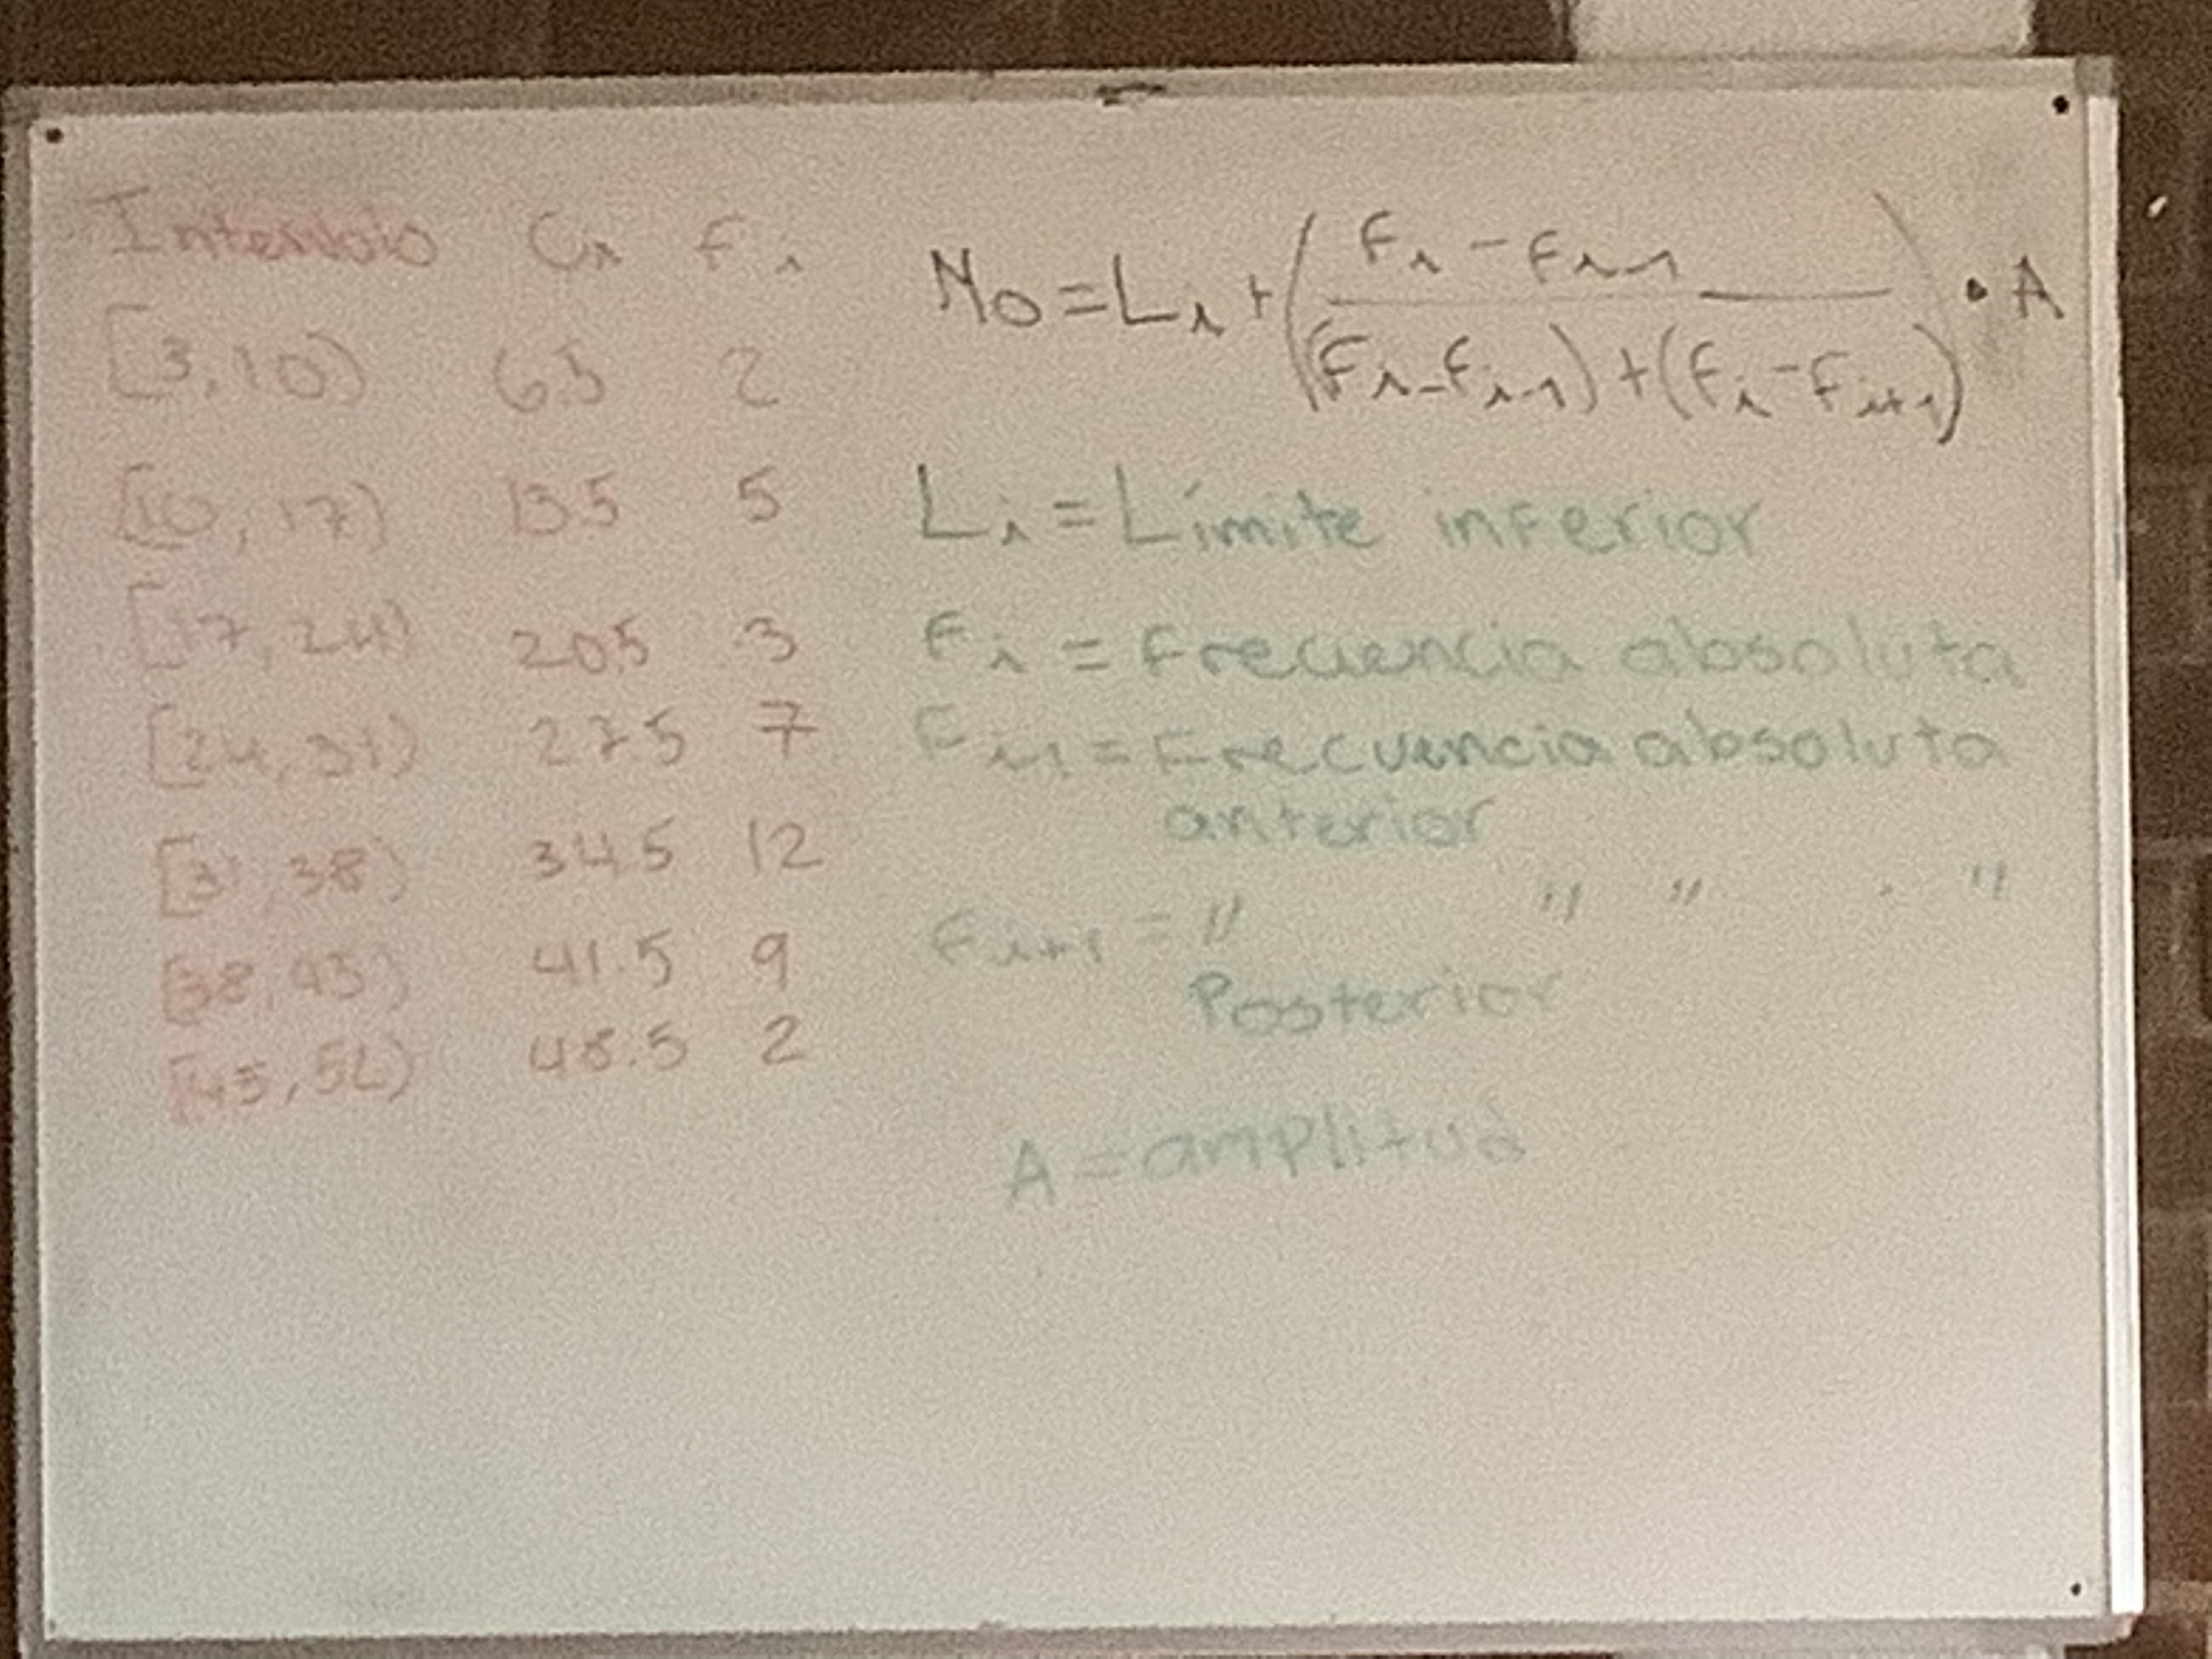 Intervalo Ci Fi
[3,10) 6.5 2
[10,17) 13.5 5
[17,24) 20.5 3
[24,31) 27.5 7
[31,38) 34.5 12
[38,45) 41.5 9
[45,52) 48.5 2
Mo = Li + ( Fi - Fi-1 / (Fi - Fi-1) + (Fi - Fi+1) ) • A
Li = Límite inferior
Fi = Frecuencia absoluta
Fi-1 = Frecuencia absoluta
anterior
Fi+1 = " " " "
Posterior
A = amplitud